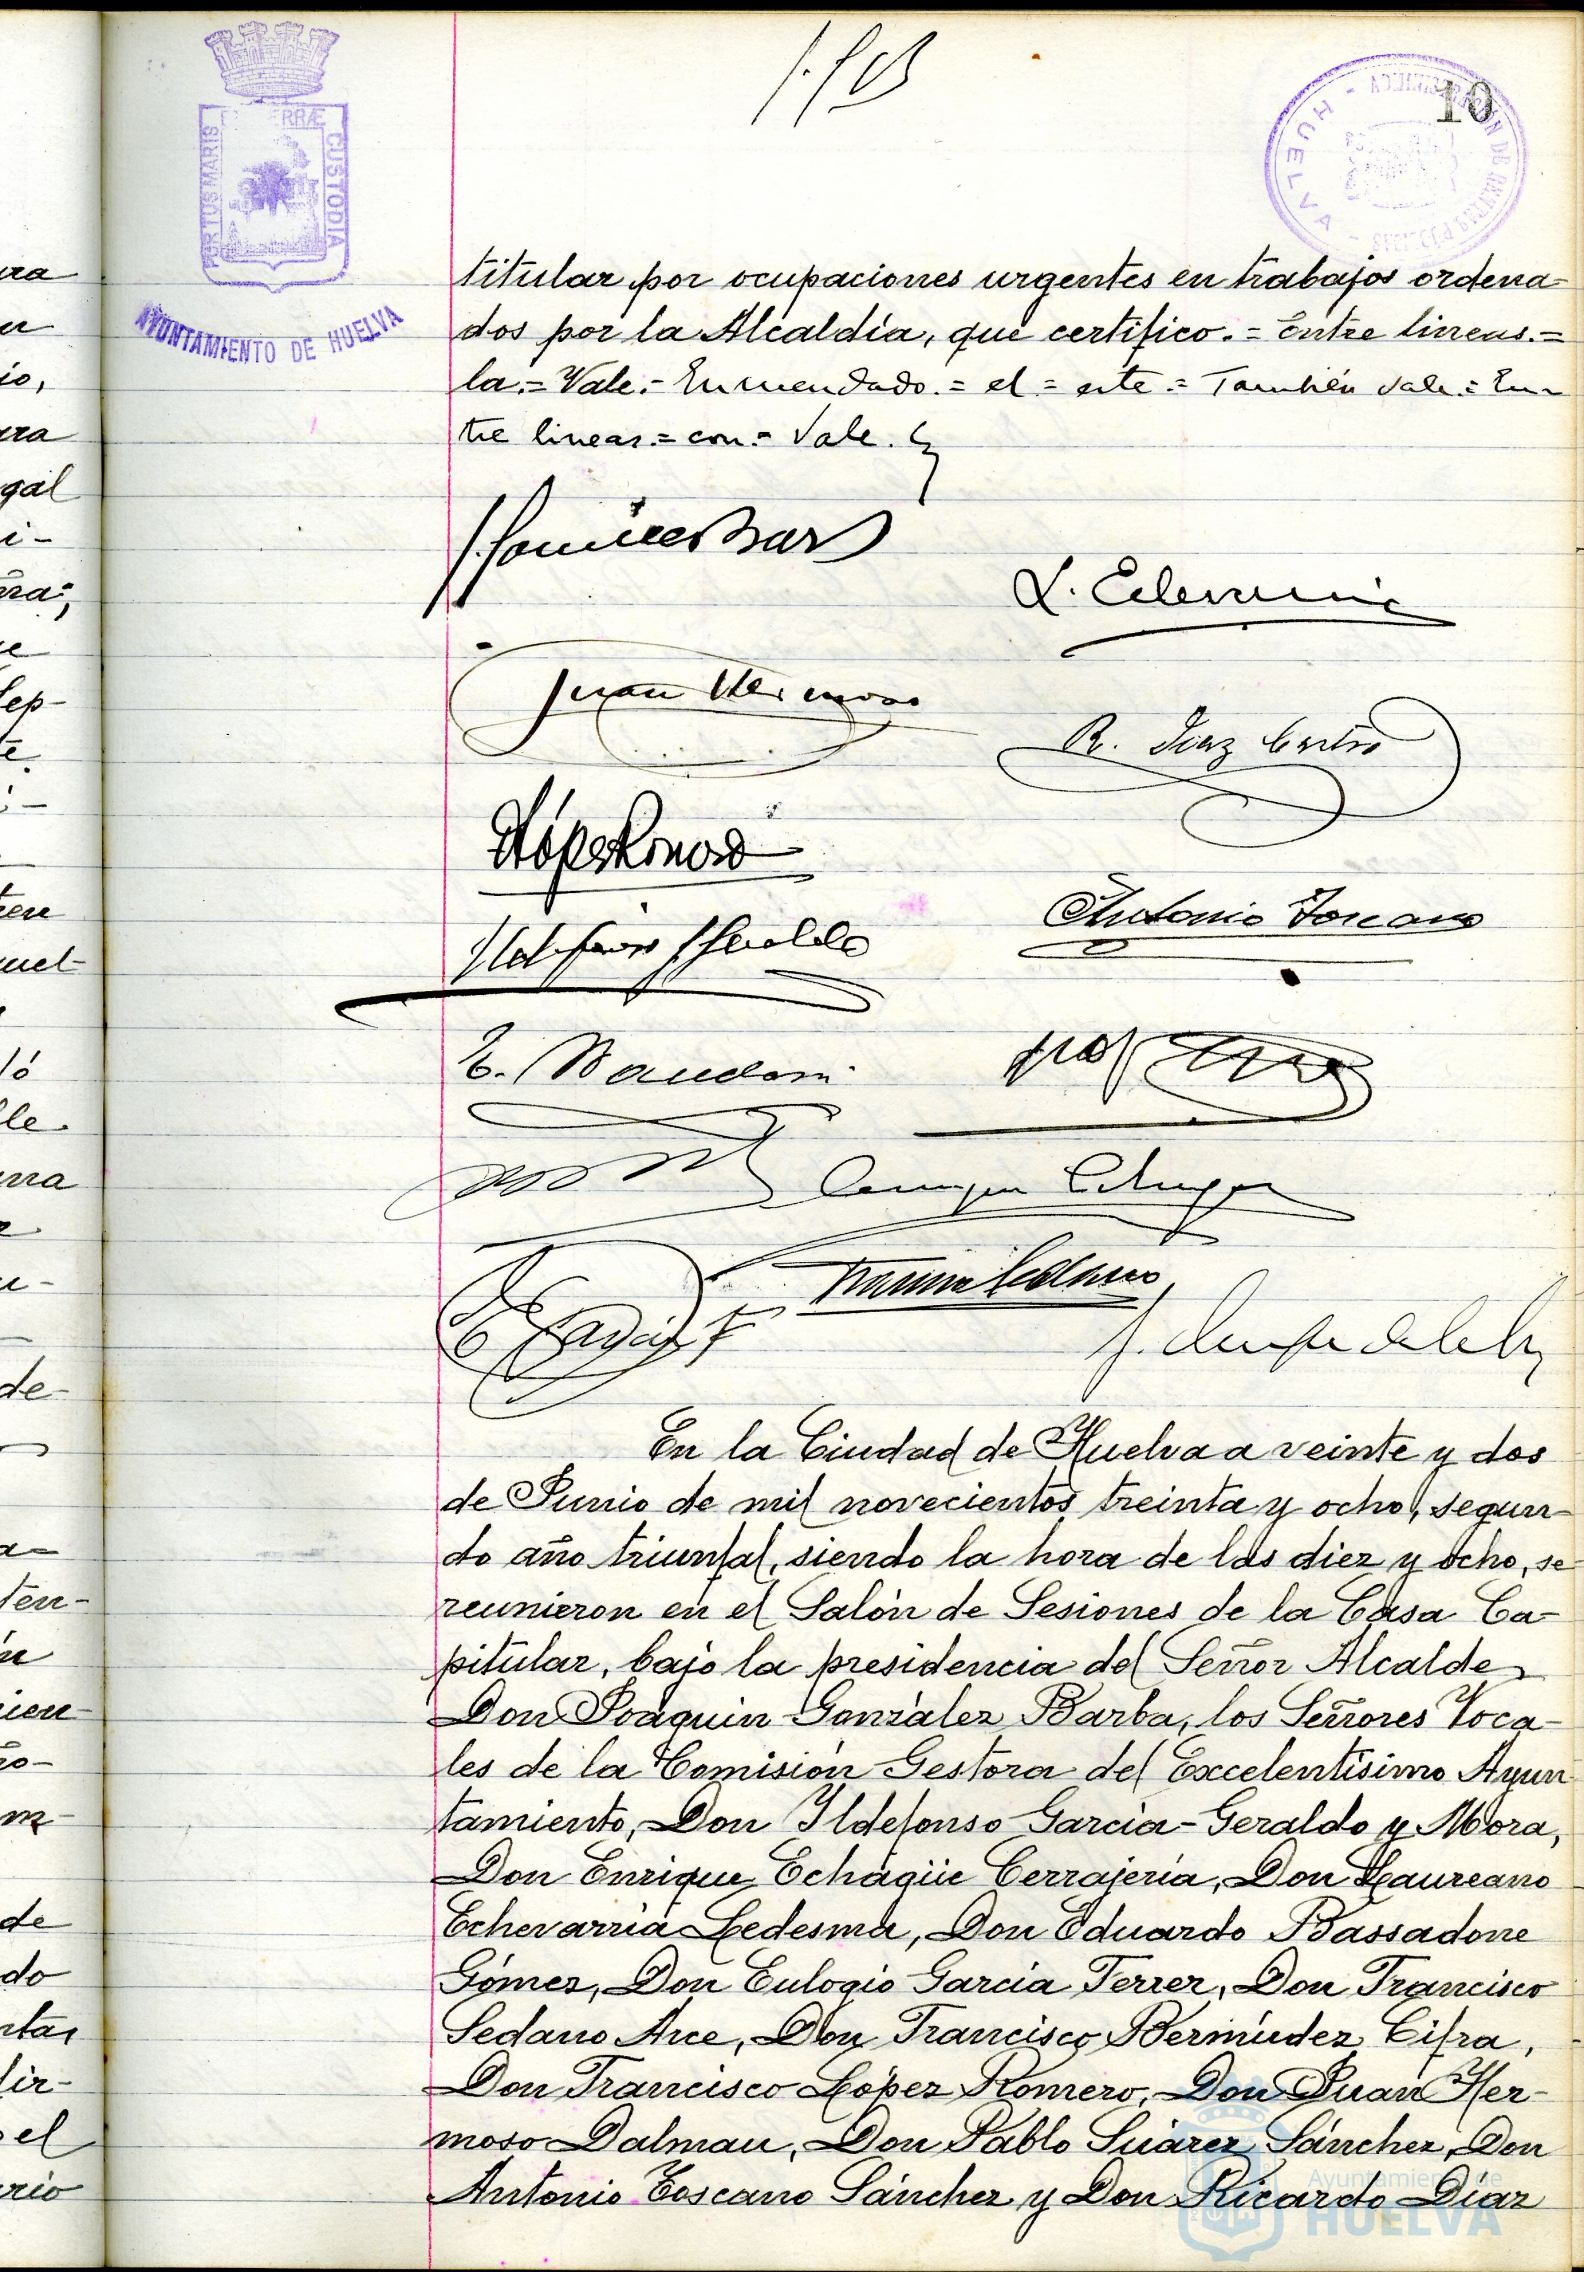 10
PORTUS MARIS
TERRÆ
CUSTODIA
AYUNTAMIENTO DE HUELVA
HUELVA
titular por ocupaciones urgentes en trabajos ordena-
dos por la Alcaldía, que certifico.= Entre lineas.=
la.= Vale.- Enmendado.= el = este = También vale.= En-
tre lineas.= con.= Vale.
L. Echevarria
Juan Hermoso
R. Diaz
LópezRomero
Antonio Toscano
Ildefonso GGeraldo
E. Bassadone
Enrique Echague
Francisco Sedano
E García F
En la Ciudad de Huelva a veinte y dos
de Junio de mil novecientos treinta y ocho, segun-
do año triunfal, siendo la hora de las diez y ocho, se
reunieron en el Salón de Sesiones de la Casa Ca-
pitular, bajo la presidencia del Señor Alcalde
Don Joaquin González Barba, los Señores Voca-
les de la Comisión Gestora del Excelentísimo Ayun
tamiento, Don Ildefonso García-Geraldo y Mora,
Don Enrique Echagüe Cerrajería, Don Laureano
Echevarría Ledesma, Don Eduardo Bassadone
Gómez, Don Eulogio García Ferrer, Don Francisco
Sedano Arce, Don Francisco Bermúdez Cifra,
Don Francisco López Romero, Don Juan Her-
moso Dalmau, Don Pablo Suárez Sánchez, Don
Antonio Toscano Sánchez y Don Ricardo Díaz
Ayuntamiento de
HUELVA